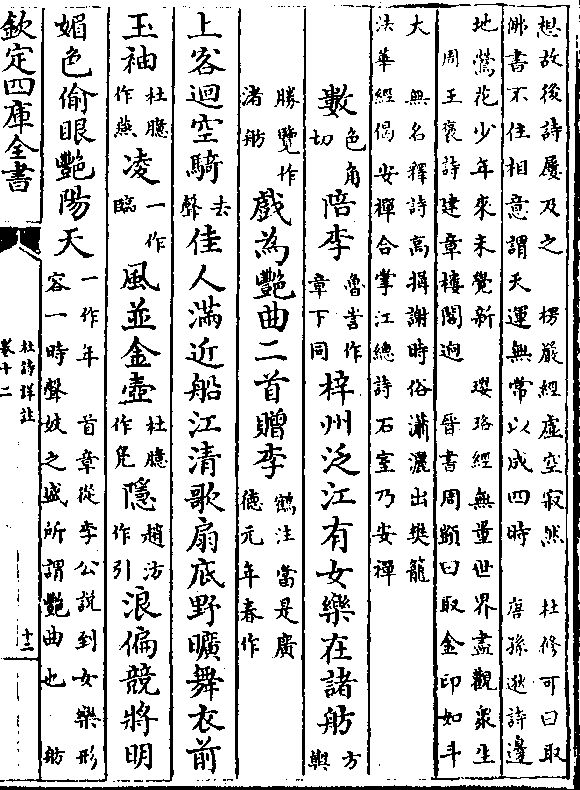 想故後詩屢及之　楞嚴經虛空寂然　杜修可曰取
佛書不住相意謂天運無常以成四時　唐孫逖詩邊
地鶯花少年來未覺新　瓔珞經無量世界盡觀眾生
周王褒詩建章樓閣迥　晉書周顗曰取金印如斗
大　無名釋詩高揖謝時俗瀟灑出樊籠
法華經偈安禪合掌江總詩石室乃安禪
數色角切陪李魯訔作章下同梓州泛江有女樂在諸舫方與
勝覽作渚舫戲為豔曲二首贈李鶴注當是廣德元年春作
上客迴空騎去聲佳人滿近船江清歌扇底野曠舞衣前
玉袖杜臆作燕凌一作臨風並金壺杜臆作凫隱趙汸作引浪偏競將明
媚色偷眼豔陽天一作年　首章從李公說到女樂形容一時聲妓之盛所謂豔曲也　舫
欽定四庫全書
杜詩詳註
卷十二
十三